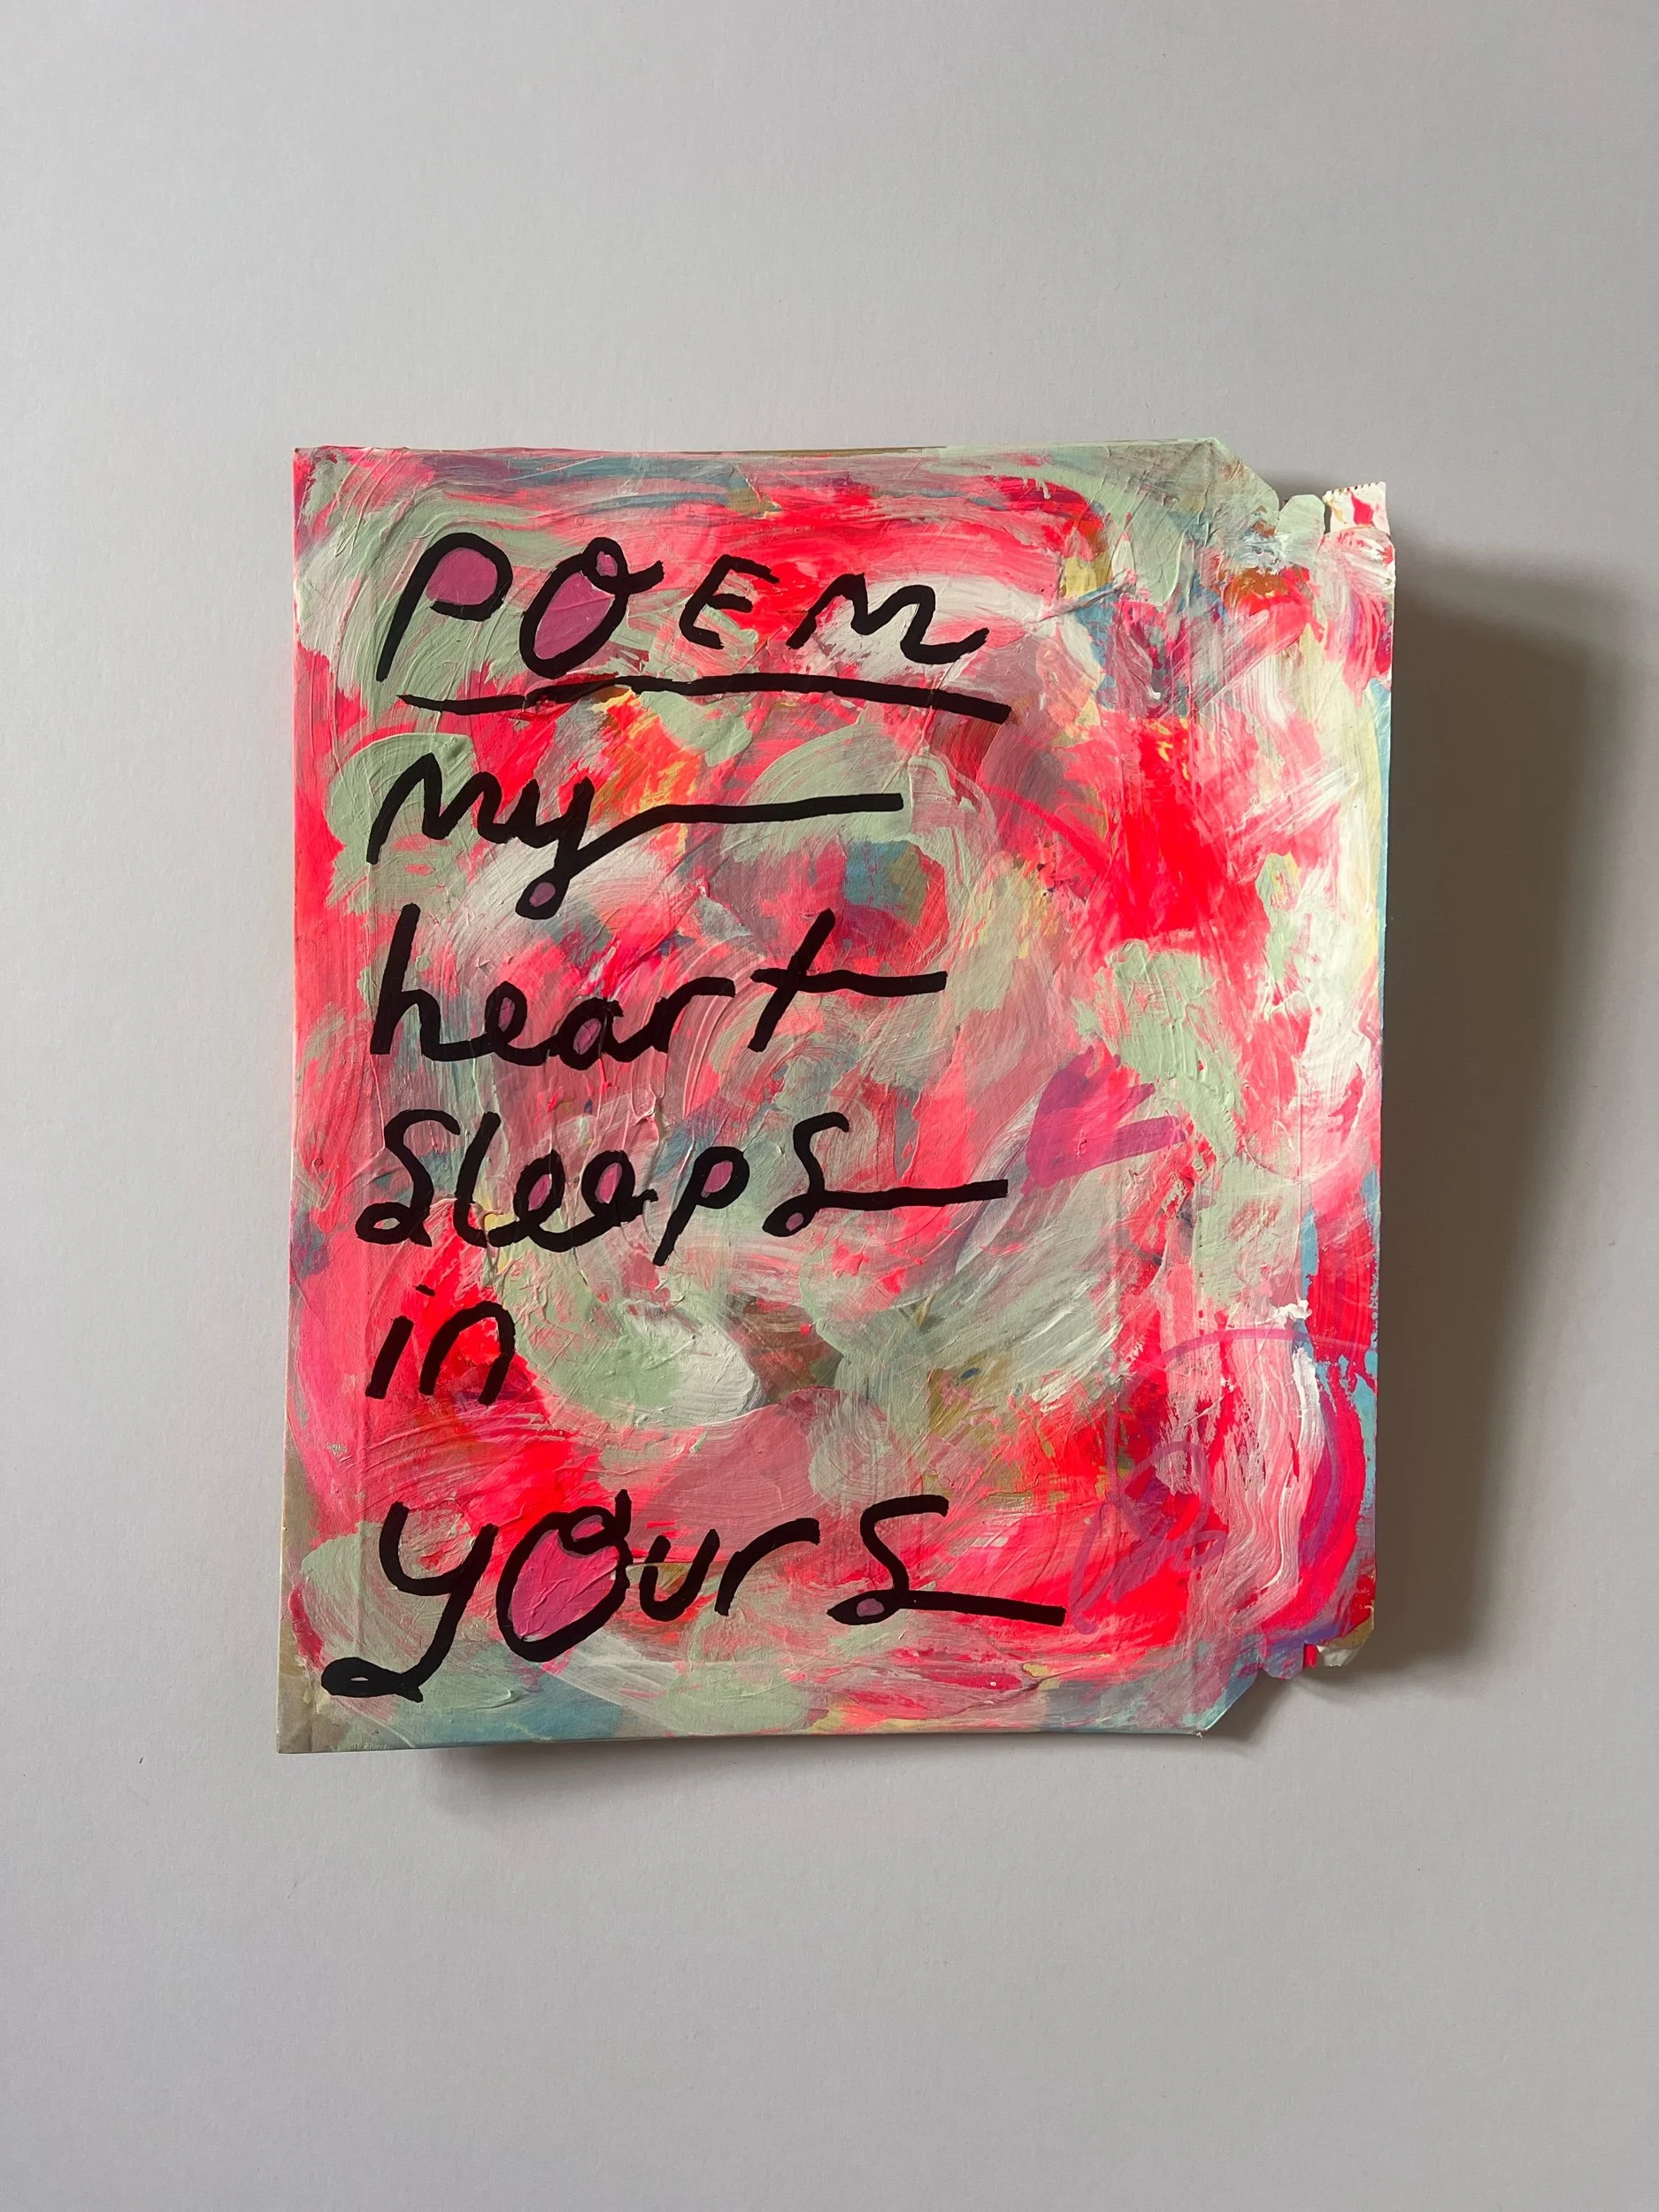 POEM
my
heart
sleeps
in
yours